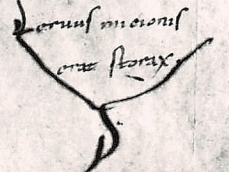 eruus mioris
erat storax